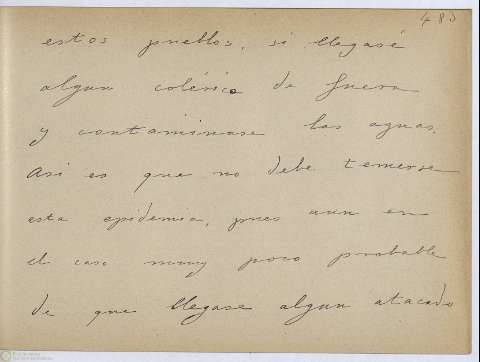 483
estos pueblos, si llegasé
algun colérico de fuera
y contaminase las aguas.
Asi es que no debe temerse
esta epidemia, pues aun en
el caso muy poco probable
de que llegase algun atacado